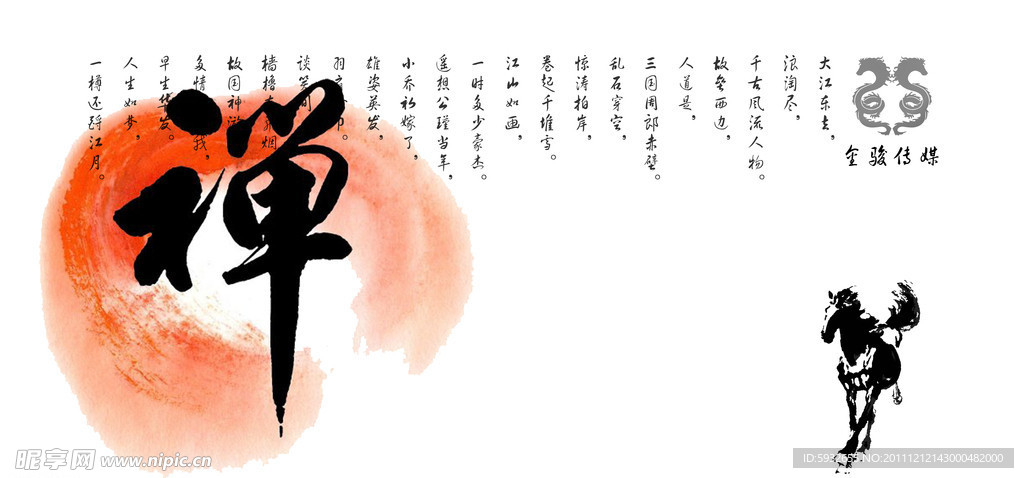 大江东去,
浪淘尽,
千古风流人物。
故垒西边,
人道是,
三国周郎赤壁。
乱石穿空,
惊涛拍岸,
卷起千堆雪。
江山如画,
一时多少豪杰。
遥想公瑾当年,
小乔初嫁了,
雄姿英发,
羽 巾。
谈笑间
樯橹 飞烟
故国神游
多情 我,
早生华发。
人生如梦,
一樽还酹江月。
金骏传媒
禅
昵享网 www.nipic.cn
NO:20111212143000482000